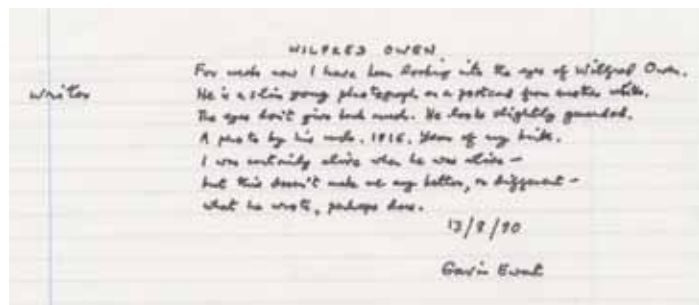 WILFRED OWEN
For weeks now I have been looking into the eyes of Wilfred Owen.
writer
He is a slim young photograph on a postcard from another writer.
The eyes don't give back much. He looks slightly guarded.
A photo by his uncle. 1916. Year of my birth.
I was certainly alive when he was alive –
but this doesn't make me any better, or different –
what he wrote, perhaps does.
13/8/90
Gavin Ewart